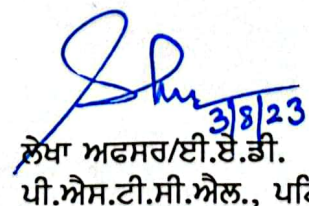 3/8/23
ਲੇਖਾ ਅਫਸਰ/ਈ.ਏ.ਡੀ.
ਪੀ.ਐਸ.ਟੀ.ਸੀ.ਐਲ.,